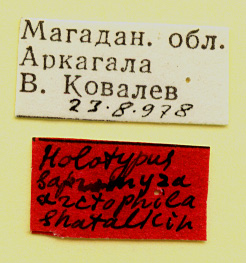 Магадан. обл.
Аркагала
В. Ковалев
23.8.978
Holotypus
Sapromyza
arctophila
Shatalkin